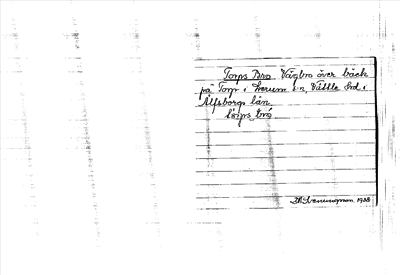 Torps Bro Vägbro över bäck
på Torp i Lerum s:n, Vättle hd. i
Älfsborgs län.
bro.
1938